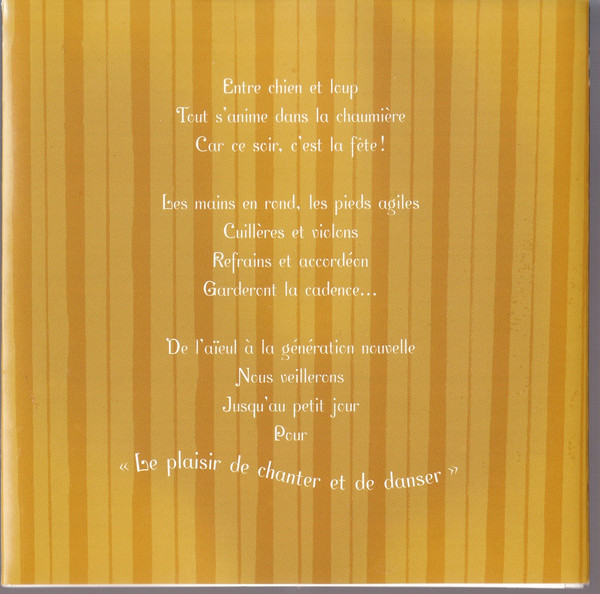 Entre chien et loup
Tout s'anime dans la chaumière
Car ce soir, c'est la fête !
Les mains en rond, les pieds agiles
Cuillères et violons
Refrains et accordéon
Garderont la cadence...
De l'aïeul à la génération nouvelle
Nous veillerons
Jusqu'au petit jour
Pour
« Le plaisir de chanter et de danser »